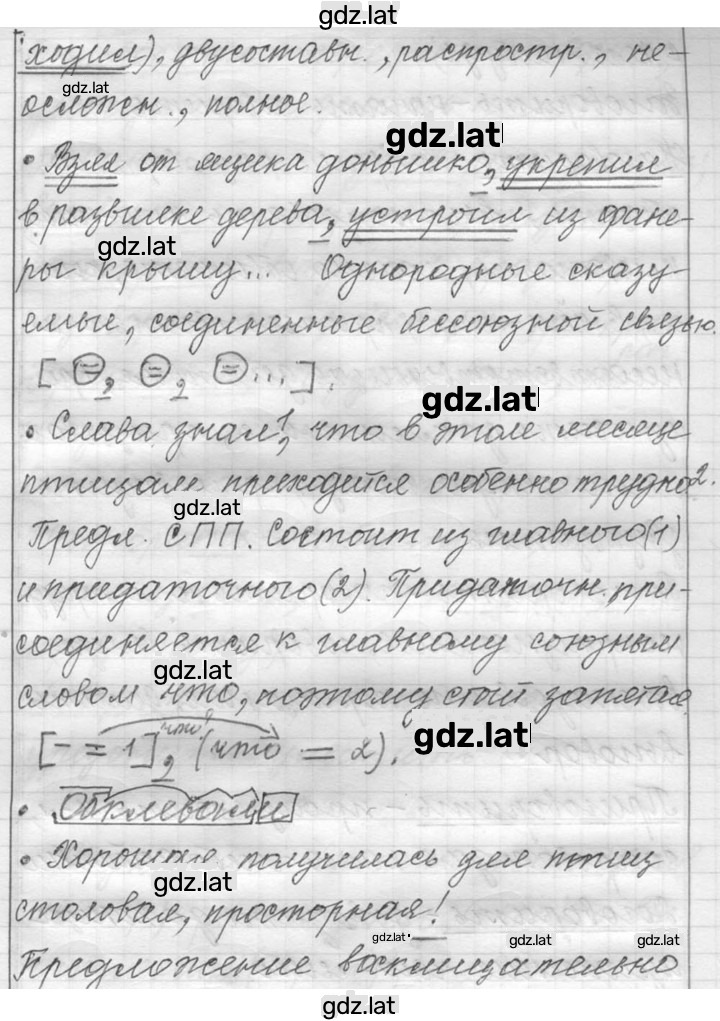 gdz.lat
ходил), двусоставн., распростр., не-
gdz.lat
осложн., полное.
gdz.lat
• Взял от ящика донышко, укрепил
в развилке дерева, устроил из фане-
gdz.lat
ры крышу... Однородные сказу-
емые, соединенные бессоюзной связью.
[ =, =, =... ].
gdz.lat
• Слава знал 1, что в этом месяце
птицам приходится особенно трудно 2.
gdz.lat
Предл. СПП. Состоит из главного (1)
и придаточного (2). Придаточн. при-
соединяется к главному союзным
gdz.lat
словом что, поэтому стоит запятая.
что?
[- = 1], (что = 2).
gdz.lat
• Обклевали
• Хорошая получилась для птиц
gdz.lat
столовая, просторная!
gdz.lat gdz.lat gdz.lat
Предложение восклицательно
gdz.lat